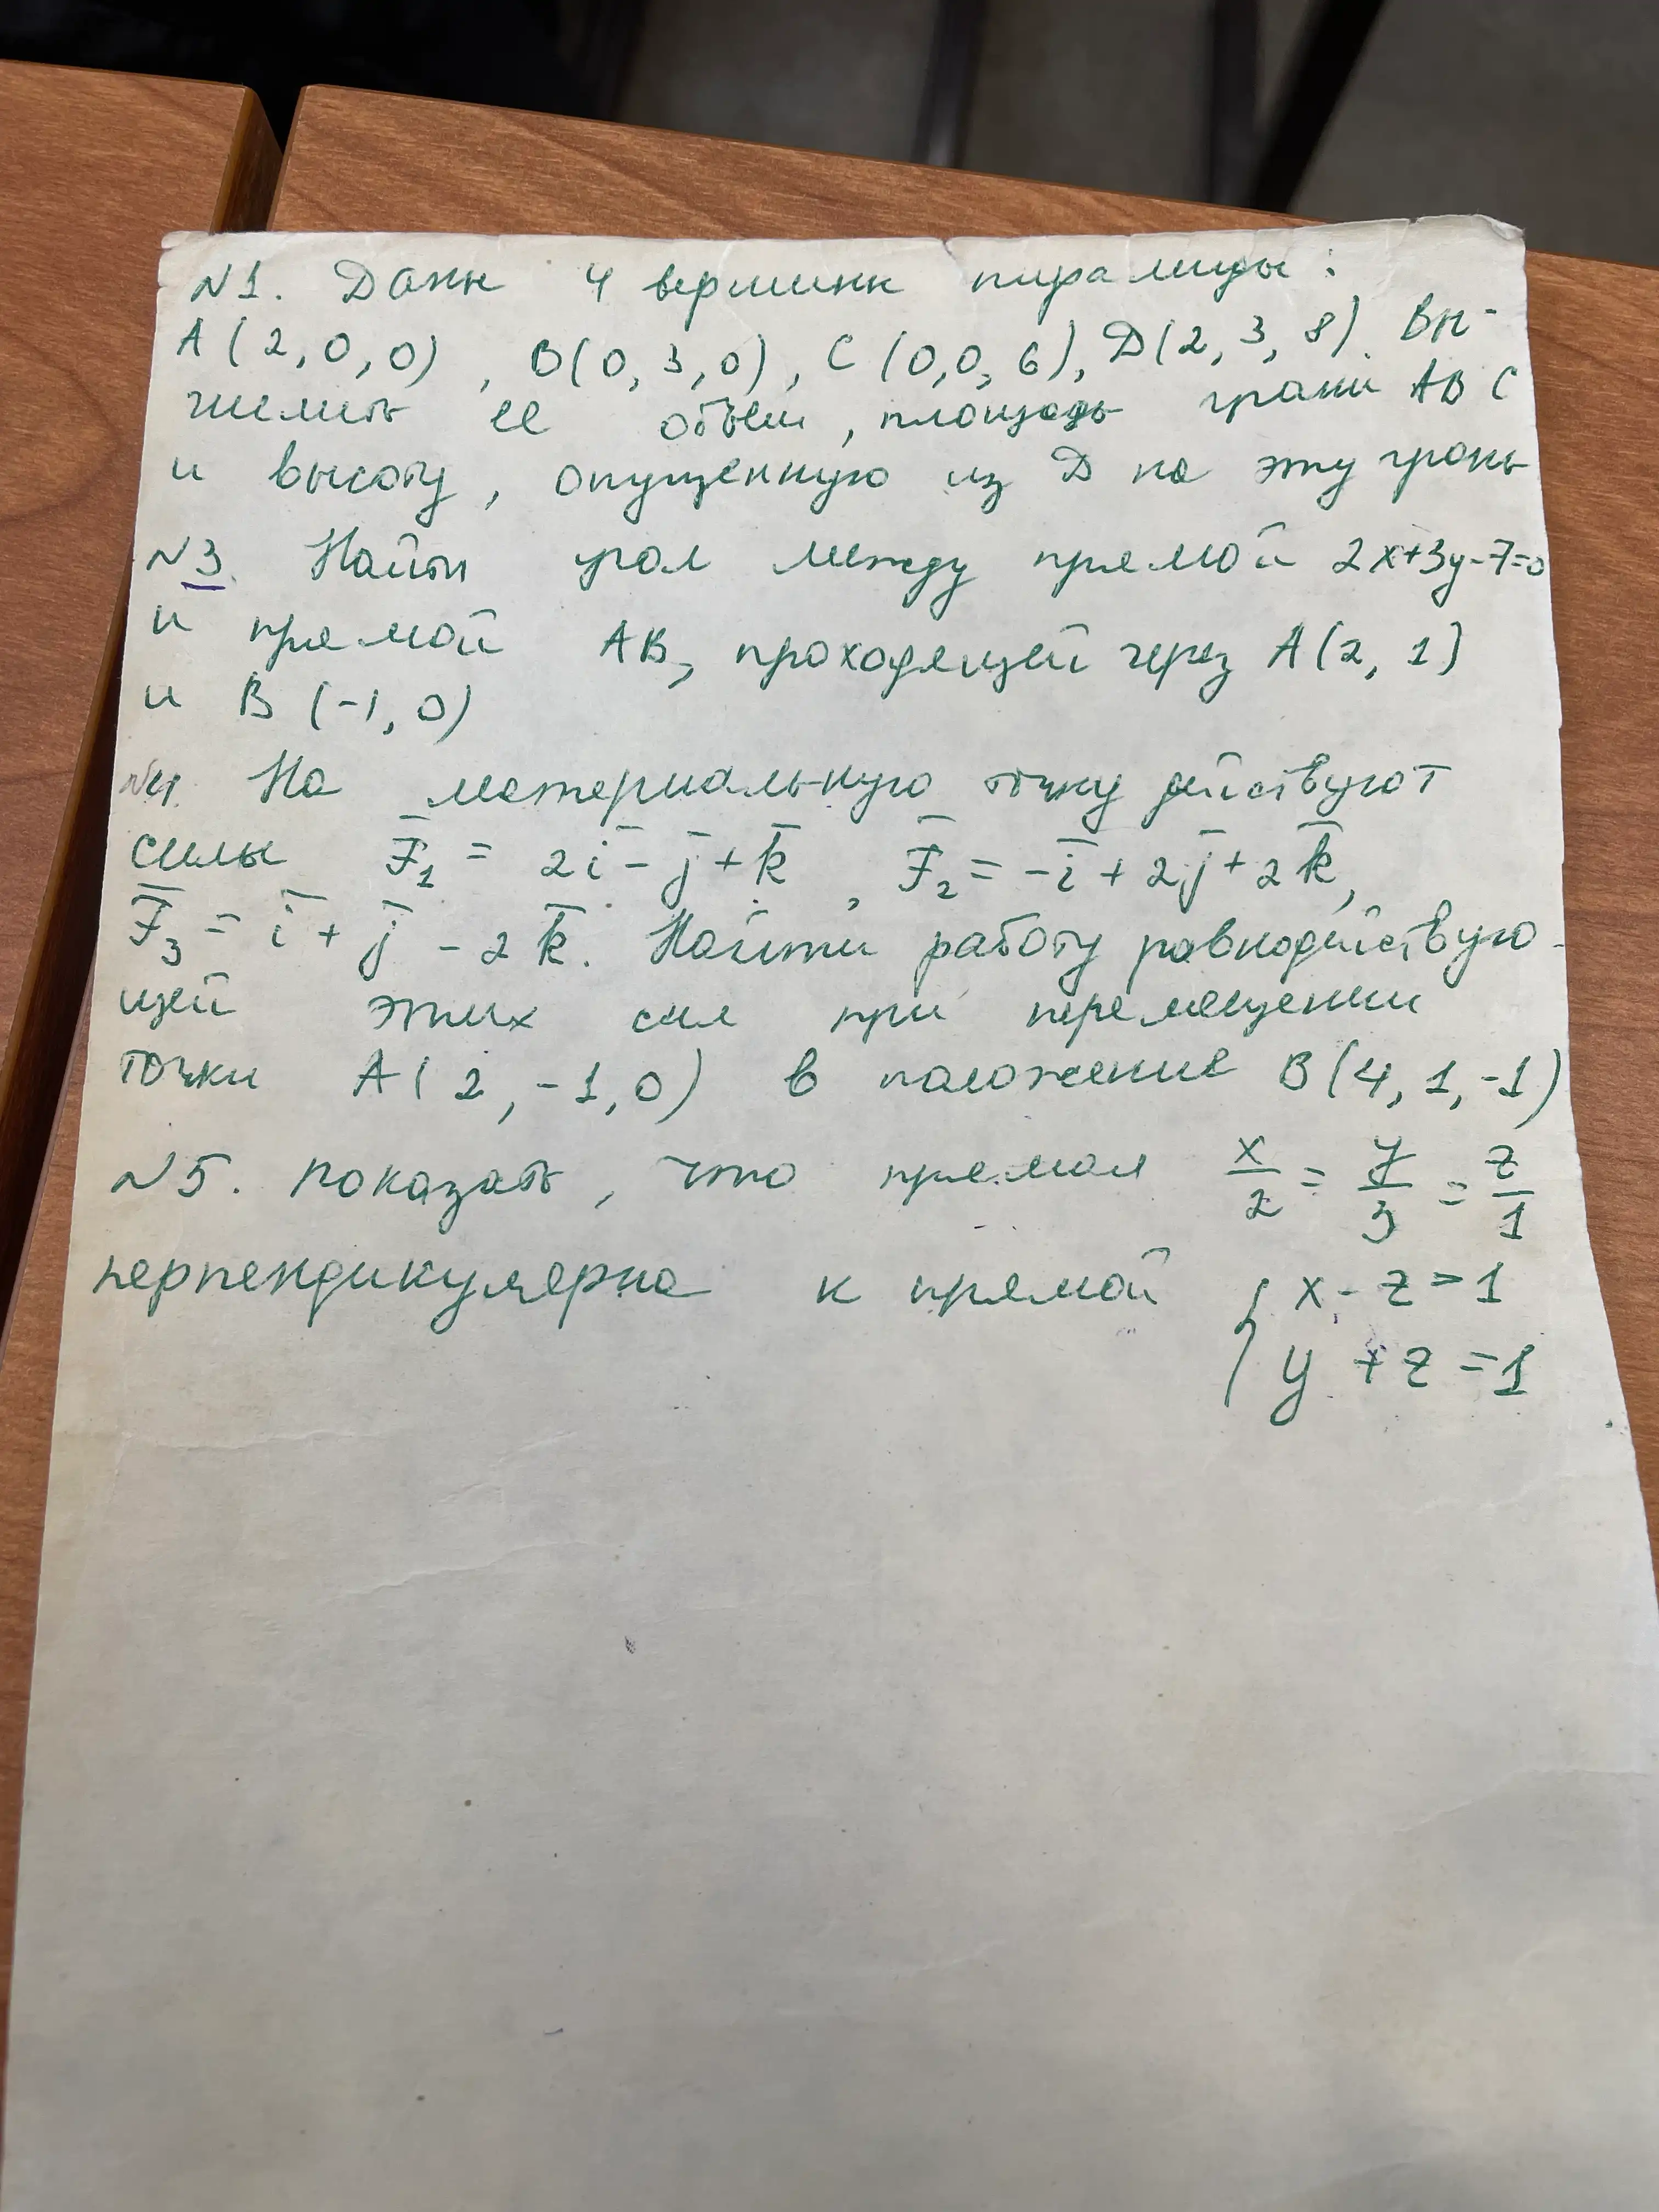 N1. Даны 4 вершины пирамиды:
A(2,0,0), B(0,3,0), C(0,0,6), D(2,3,8). Вы-
числить ее объем, площадь грани ABC
и высоту, опущенную из D на эту грань
N3. Найти угол между прямой 2x+3y-7=0
и прямой AB, проходящей через A(2, 1)
и B(-1, 0)
N4. На материальную точку действуют
силы F̅₁ = 2i̅ - j̅ + k̅, F̅₂ = -i̅ + 2j̅ + 2k̅,
F̅₃ = i̅ + j̅ - 2k̅. Найти работу равнодействую-
щей этих сил при перемещении
точки A(2, -1, 0) в положение B(4, 1, -1)
N5. Показать, что прямая x/2 = y/3 = z/1
перпендикулярна к прямой { x - z = 1
y + z = 1